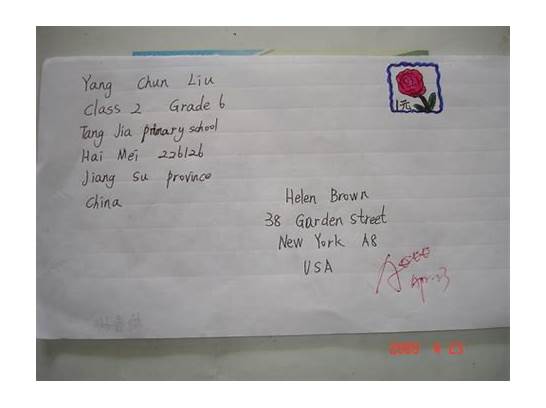 Yang Chun Liu
Class 2 Grade 6
Tang Jia primary school
Hai Mei 226126
Jiang Su province
China
1元
Helen Brown
38 Garden street
New York A8
USA
Apr. 23
2009 4 23